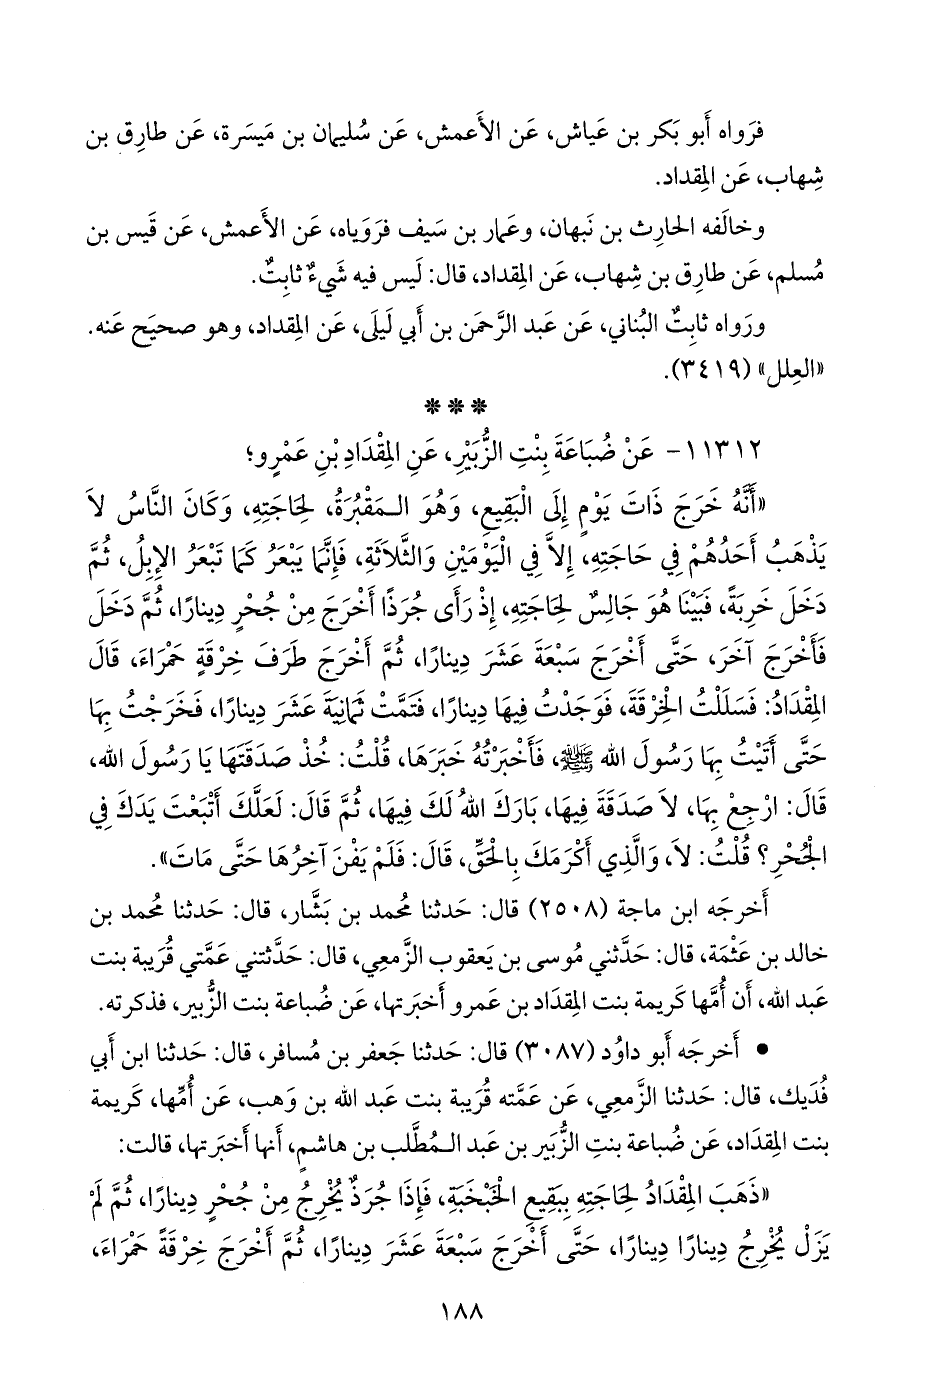 فرَواه أَبو بَكر بن عَياش، عَن الأَعمش، عَن سُليمان بن مَيسَرة، عَن طارِق بن
شِهاب، عَن المِقداد.
وخالَفه الحارِث بن نَبهان، وعَمار بن سَيف فرَوَياه، عَن الأَعمش، عَن قَيس بن
مُسلم، عَن طارِق بن شِهاب، عَن المِقداد، قال: لَيس فيه شَيءٌ ثابِتٌ.
ورَواه ثابِتٌ البُناني، عَن عَبد الرَّحمَن بن أَبي لَيلَى، عَن المِقداد، وهو صحيَح عَنه.
«العِلل» (٣٤١٩).
***
١١٣١٢- عَنْ ضُبَاعَةَ بِنْتِ الزُّبَيْرِ، عَنِ المِقْدَادِ بْنِ عَمْرٍو؛
«أَنَّهُ خَرَجَ ذَاتَ يَوْمٍ إِلَى الْبَقِيعِ، وَهُوَ الـمَقْبُرَةُ، لِحَاجَتِهِ، وَكَانَ النَّاسُ لاَ
يَذْهَبُ أَحَدُهُمْ فِي حَاجَتِهِ، إِلاَّ فِي الْيَوْمَيْنِ وَالثَّلاَثَةِ، فَإِنَّمَا يَبْعَرُ كَمَا تَبْعَرُ الإِبِلُ، ثُمَّ
دَخَلَ خَرِبَةً، فَبَيْنَا هُوَ جَالِسٌ لِحَاجَتِهِ، إِذْ رَأَى جُرَذًا أَخْرَجَ مِنْ جُحْرٍ دِينَارًا، ثُمَّ دَخَلَ
فَأَخْرَجَ آخَرَ، حَتَّى أَخْرَجَ سَبْعَةَ عَشَرَ دِينَارًا، ثُمَّ أَخْرَجَ طَرَفَ خِرْقَةٍ حَمْرَاءَ، قَالَ
المِقْدَادُ: فَسَلَلْتُ الخِرْقَةَ، فَوَجَدْتُ فِيهَا دِينَارًا، فَتَمَّتْ ثَمَانِيَةَ عَشَرَ دِينَارًا، فَخَرَجْتُ بِهَا
حَتَّى أَتَيْتُ بِهَا رَسُولَ الله ﷺ، فَأَخْبَرْتُهُ خَبَرَهَا، قُلْتُ: خُذْ صَدَقَتَهَا يَا رَسُولَ الله،
قَالَ: ارْجِعْ بِهَا، لاَ صَدَقَةَ فِيهَا، بَارَكَ اللهُ لَكَ فِيهَا، ثُمَّ قَالَ: لَعَلَّكَ أَتْبَعْتَ يَدَكَ فِي
الجُحْرِ؟ قُلْتُ: لاَ، وَالَّذِي أَكْرَمَكَ بِالحَقِّ، قَالَ: فَلَمْ يَفْنَ آخِرُهَا حَتَّى مَاتَ».
أَخرجَه ابن ماجة (٢٥٠٨) قال: حَدثنا مُحمد بن بَشَّار، قال: حَدثنا مُحمد بن
خالد بن عَثْمَة، قال: حَدَّثني مُوسى بن يَعقوب الزَّمعِي، قال: حَدَّثتني عَمَّتي قُرَيبة بنت
عَبد الله، أَن أُمَّها كَريمة بنت المِقدَاد بن عَمرو أَخبَرتها، عَن ضُباعة بنت الزُّبير، فذكرته.
• أَخرجَه أَبو داوُد (٣٠٨٧) قال: حَدثنا جَعفر بن مُسافر، قال: حَدثنا ابن أَبي
فُدَيك، قال: حَدثنا الزَّمعِي، عَن عَمَّته قُرَيبة بنت عَبد الله بن وَهب، عَن أُمِّها، كَريمة
بنت المِقدَاد، عَن ضُباعة بنتِ الزُّبَير بن عَبد الـمُطَّلب بن هاشمٍ، أَنها أَخبَرتها، قالت:
«ذَهَبَ المِقْدَادُ لِحَاجَتِهِ بِبَقِيعِ الخَبْخَبَةِ، فَإِذَا جُرَذٌ يُخْرِجُ مِنْ جُحْرٍ دِينَارًا، ثُمَّ لَمْ
يَزَلْ يُخْرِجُ دِينَارًا دِينَارًا، حَتَّى أَخْرَجَ سَبْعَةَ عَشَرَ دِينَارًا، ثُمَّ أَخْرَجَ خِرْقَةً حَمْرَاءَ،
١٨٨